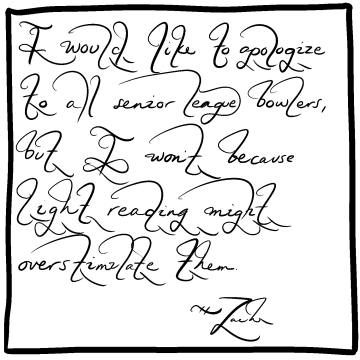 I would like to apologize
to all senior league bowlers,
but I won't because
light reading might
overstimulate them.